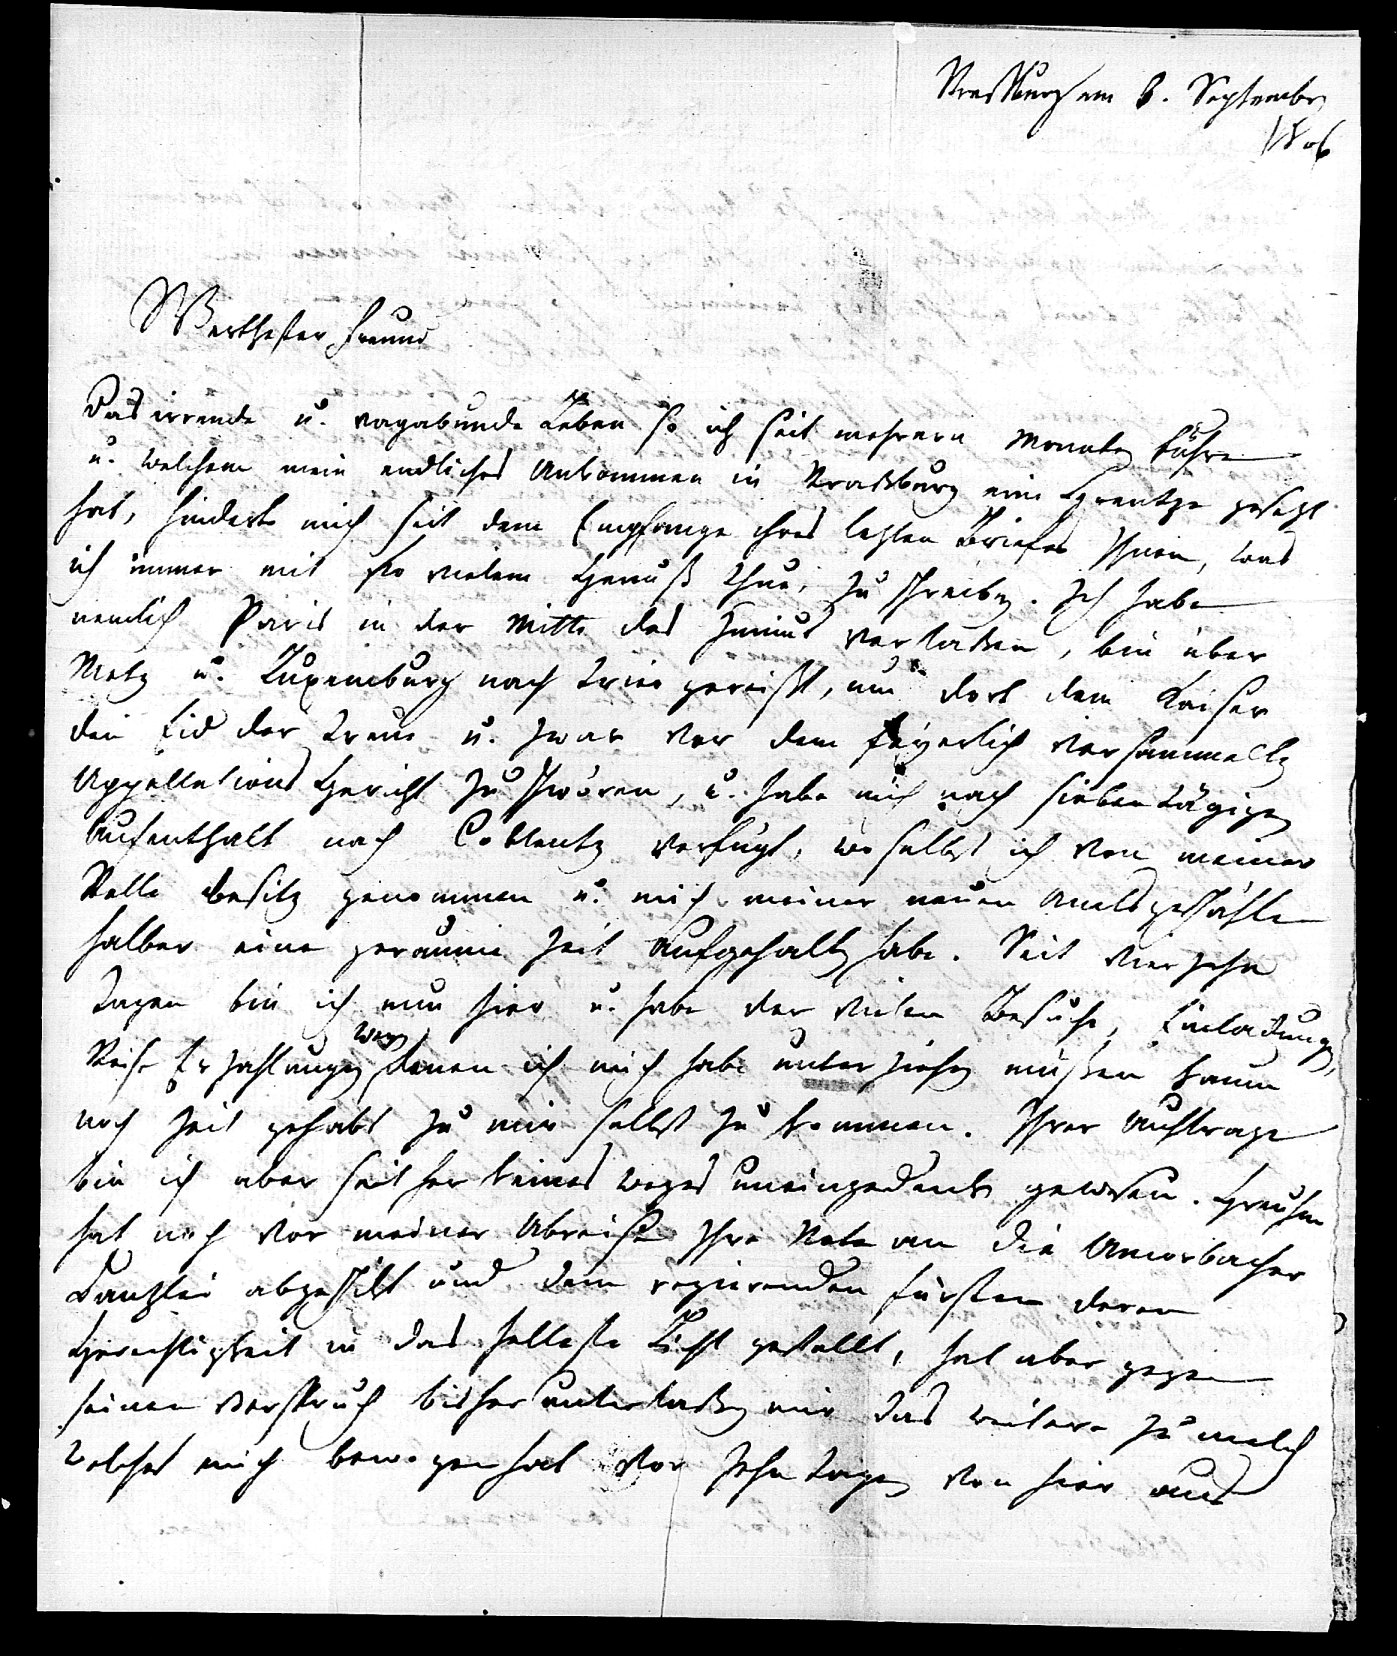 Straßburg am 8. September
1806
Werthester Freund
Das irrende u. vagabunde Leben so ich seit mehrern Monaten führe
u. welchem mein endliches Ankommen in Straßburg eine Grentze gesezt
hat, hinderte mich seit dem Empfange ihres lezten Briefes Ihnen, was
ich immer mit so vielem Genuß thue, zu schreiben. Ich habe
nemlich Paris in der Mitte des Junius verlaßen, bin über
Metz u. Luxemburg nach Trier gereißt, um dort dem Kaiser
den Eid der Treue u. zwar vor dem feyerlich versammelten
Appellations Gericht zu schwören, u. habe mich nach siebentägigen
Aufenthalt nach Coblentz verfügt, woselbst ich von meiner
Stelle Besitz genommen u. mich meiner neuen Amtsgeschäfte
halber eine geraume Zeit aufgehalten habe. Seit vierzehn
Tagen bin ich nun hier u. habe der vielen Besuche, Einladungen,
Reise Erzahlungen wegen denen ich mich habe unterziehen müßen kaum
noch Zeit gehabt zu mir selbst zu kommen. Ihrer Auftrage
bin ich aber seither keines weges uneingedenk gewesen. Greuhm
hat noch vor meiner Abreise Ihre Note an die Amorbacher
Kanzlei abgeschikt und dem regierenden Fürsten deren
Gerechtigkeit in das helleste Licht gestellt, hat aber gegen
seinen Verspruch bisher unterlaßen mir das weitere zu melden
welches mich bewogen hat vor zehn Tagen von hier aus